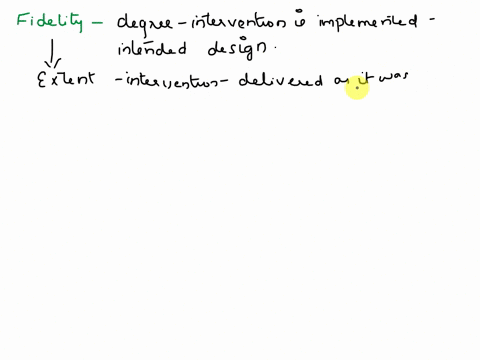 Fidelity - degree - intervention is implemented -
intended design.
Extent - intervention - delivered as it was